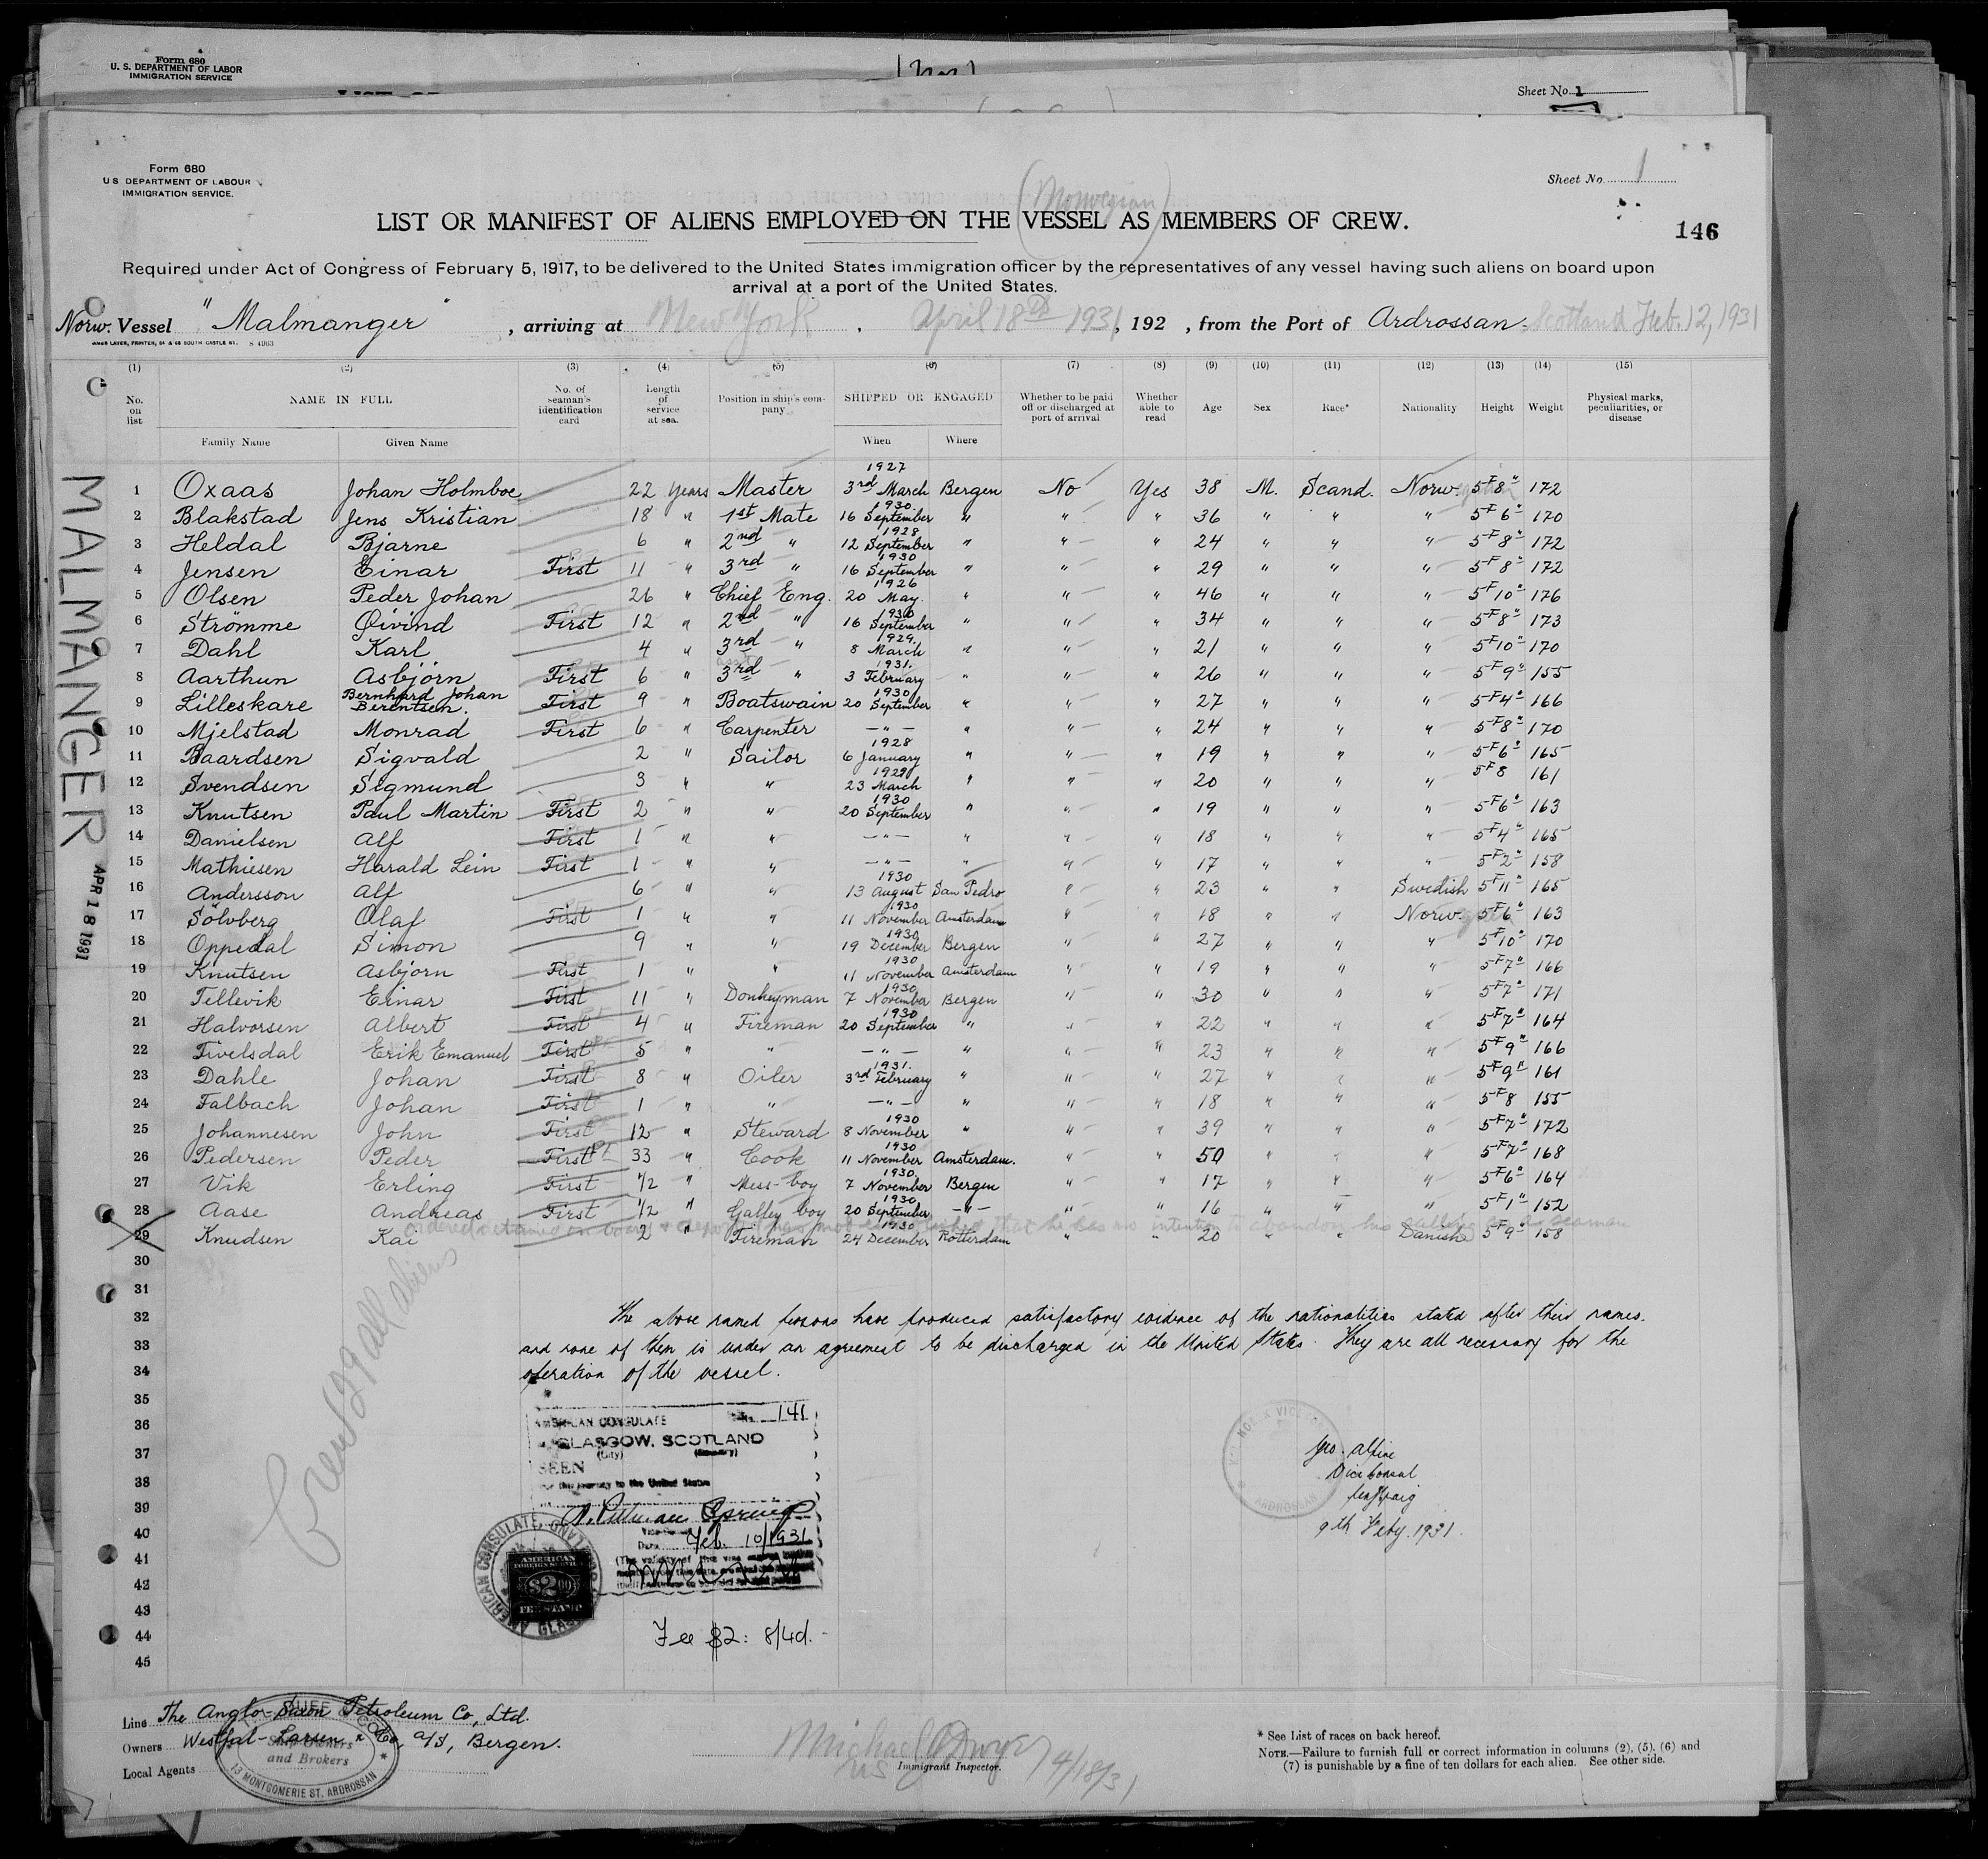 Form 680
U. S. DEPARTMENT OF LABOR
IMMIGRATION SERVICE
Sheet No. 1
Form 680
U S DEPARTMENT OF LABOUR
IMMIGRATION SERVICE.
Sheet No. 1
(Norwegian)
LIST OR MANIFEST OF ALIENS EMPLOYED ON THE VESSEL AS MEMBERS OF CREW.
146
Required under Act of Congress of February 5, 1917, to be delivered to the United States immigration officer by the representatives of any vessel having such aliens on board upon
arrival at a port of the United States.
Norw. Vessel "Malmanger", arriving at New York, April 18th 1931, 192 , from the Port of Ardrossan - Scotland Feb. 12, 1931
S 4963
(1) (2) (3) (4) (5) (6) (7) (8) (9) (10) (11) (12) (13) (14) (15)
No. on list NAME IN FULL No. of seaman's identification card Length of service at sea. Position in ship's company SHIPPED OR ENGAGED Whether to be paid off or discharged at port of arrival Whether able to read Age Sex Race* Nationality Height Weight Physical marks, peculiarities, or disease
Family Name Given Name When Where
MALMANGER
APR 18 1931
1 Oxaas Johan Holmboe 22 years Master 1927 3rd March Bergen No Yes 38 M. Scand. Norwegian 5F 8" 172
2 Blakstad Jens Kristian 18 " 1st Mate 1930. 16 September " " " 36 " " " 5F 6" 170
3 Heldal Bjarne 6 " 2nd " 1928 12 September " " " 24 " " " 5F 8" 172
4 Jensen Einar First 11 " 3rd " 1930 16 September " " " 29 " " " 5F 8" 172
5 Olsen Peder Johan 26 " Chief Eng. 1926 20 May. " " " 46 " " " 5F 10" 176
6 Strömme Öivind First 12 " 2nd " 1930 16 September " " " 34 " " " 5F 8" 173
7 Dahl Karl 4 " 3rd " 1929. 8 March " " " 21 " " " 5F 10" 170
8 Aarthun Asbjörn First 6 " asst 3rd " 1931. 3 February " " " 26 " " " 5F 9" 155
9 Lilleskare Bernhard Johan Berentsen. First 9 " Boatswain 1930 20 September " " " 27 " " " 5F 4" 166
10 Mjelstad Monrad First 6 " Carpenter — " — " " " 24 " " " 5F 8" 170
11 Baardsen Sigvald 2 " Sailor 1928 6 January " " " 19 " " " 5F 6" 165
12 Svendsen Sigmund 3 " " 1929 23 March " " " 20 " " " 5F 8 161
13 Knutsen Paul Martin First 2 " " 1930 20 September " " " 19 " " " 5F 6" 163
14 Danielsen Alf First 1 " " — " — " " " 18 " " " 5F 4" 165
15 Mathiesen Harald Lein First 1 " " — " — " " " 17 " " " 5F 2" 158
16 Andersson Alf 6 " " 1930 13 August San Pedro " " 23 " " Swedish 5F 11" 165
17 Sölvberg Olaf First 1 " " 1930 11 November Amsterdam " " 18 " " Norwegian 5F 6" 163
18 Oppedal Simon 9 " " 1930 19 December Bergen " " 27 " " " 5F 10" 170
19 Knutsen Asbjörn First 1 " " 1930 11 November Amsterdam " " 19 " " " 5F 7" 166
20 Tellevik Einar First 11 " Donkeyman 1930 7 November Bergen " " 30 " " " 5F 7" 171
21 Halvorsen Albert First 4 " Fireman 1930 20 September " " " 22 " " " 5F 7" 164
22 Tivelsdal Erik Emanuel First 5 " " — " — " " " 23 " " " 5F 9" 166
23 Dahle Johan First 8 " Oiler 1931. 3rd February " " " 27 " " " 5F 9" 161
24 Falbach Johan First 1 " " — " — " " " 18 " " " 5F 8 155
25 Johannesen John First 12 " Steward 1930 8 November " " " 39 " " " 5F 7" 172
26 Pedersen Peder First 33 " Cook 1930 11 November Amsterdam. " " 50 " " " 5F 7" 168
27 Vik Erling First 1/2 " Mess-boy 1930. 7 November Bergen " " 17 " " " 5F 6" 164
28 Aase Andreas First 1/2 " Galley boy 1930 20 September — " — " " 16 " " " 5F 1" 152
that he has no intention to abandon his calling as a seaman
29 Knudsen Kai 2 " Fireman 1930 24 December Rotterdam " " 20 " " Danish 5F 9" 158
30
31
32
33
34
35
36
37
38
39
40
41
42
43
44
45
Crew 29 all aliens
The above named persons have produced satisfactory evidence of the nationalities stated after their names.
and none of them is under an agreement to be discharged in the United States. They are all necessary for the
operation of the vessel.
AMERICAN CONSULATE No. 141
GLASGOW, SCOTLAND
(City) (Country)
SEEN
For the journey to the United States
Date Feb. 10/1931
AMERICAN CONSULATE
AMERICAN
FOREIGN SERVICE
$2.00
FEE STAMP
Fee $2: 8/4d.
ARDROSSAN
Vice Consul
9th Feby. 1931.
Line The Anglo-Saxon Petroleum Co, Ltd.
Owners Westfal-Larsen & Co, a/s, Bergen.
Local Agents
Ship Owners
and Brokers
13 MONTGOMERIE ST. ARDROSSAN
Michael O'Dwyer
US Immigrant Inspector. 4/18/31
* See List of races on back hereof.
NOTE.—Failure to furnish full or correct information in columns (2), (5), (6) and
(7) is punishable by a fine of ten dollars for each alien. See other side.